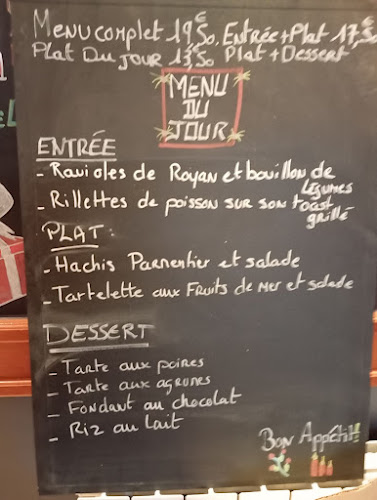 Menu complet 19€50. Entrée + Plat 17,50
Plat Du Jour 13€50 Plat + Dessert
MENU
DU
JOUR
ENTRÉE
- Ravioles de Royan et bouillon de légumes
- Rillettes de poisson sur son toast grillé
PLAT :
- Hachis Parmentier et salade
- Tartelette aux Fruits de Mer et salade
DESSERT
- Tarte aux poires
- Tarte aux agrumes
- Fondant au chocolat
- Riz au lait
Bon Appétit!